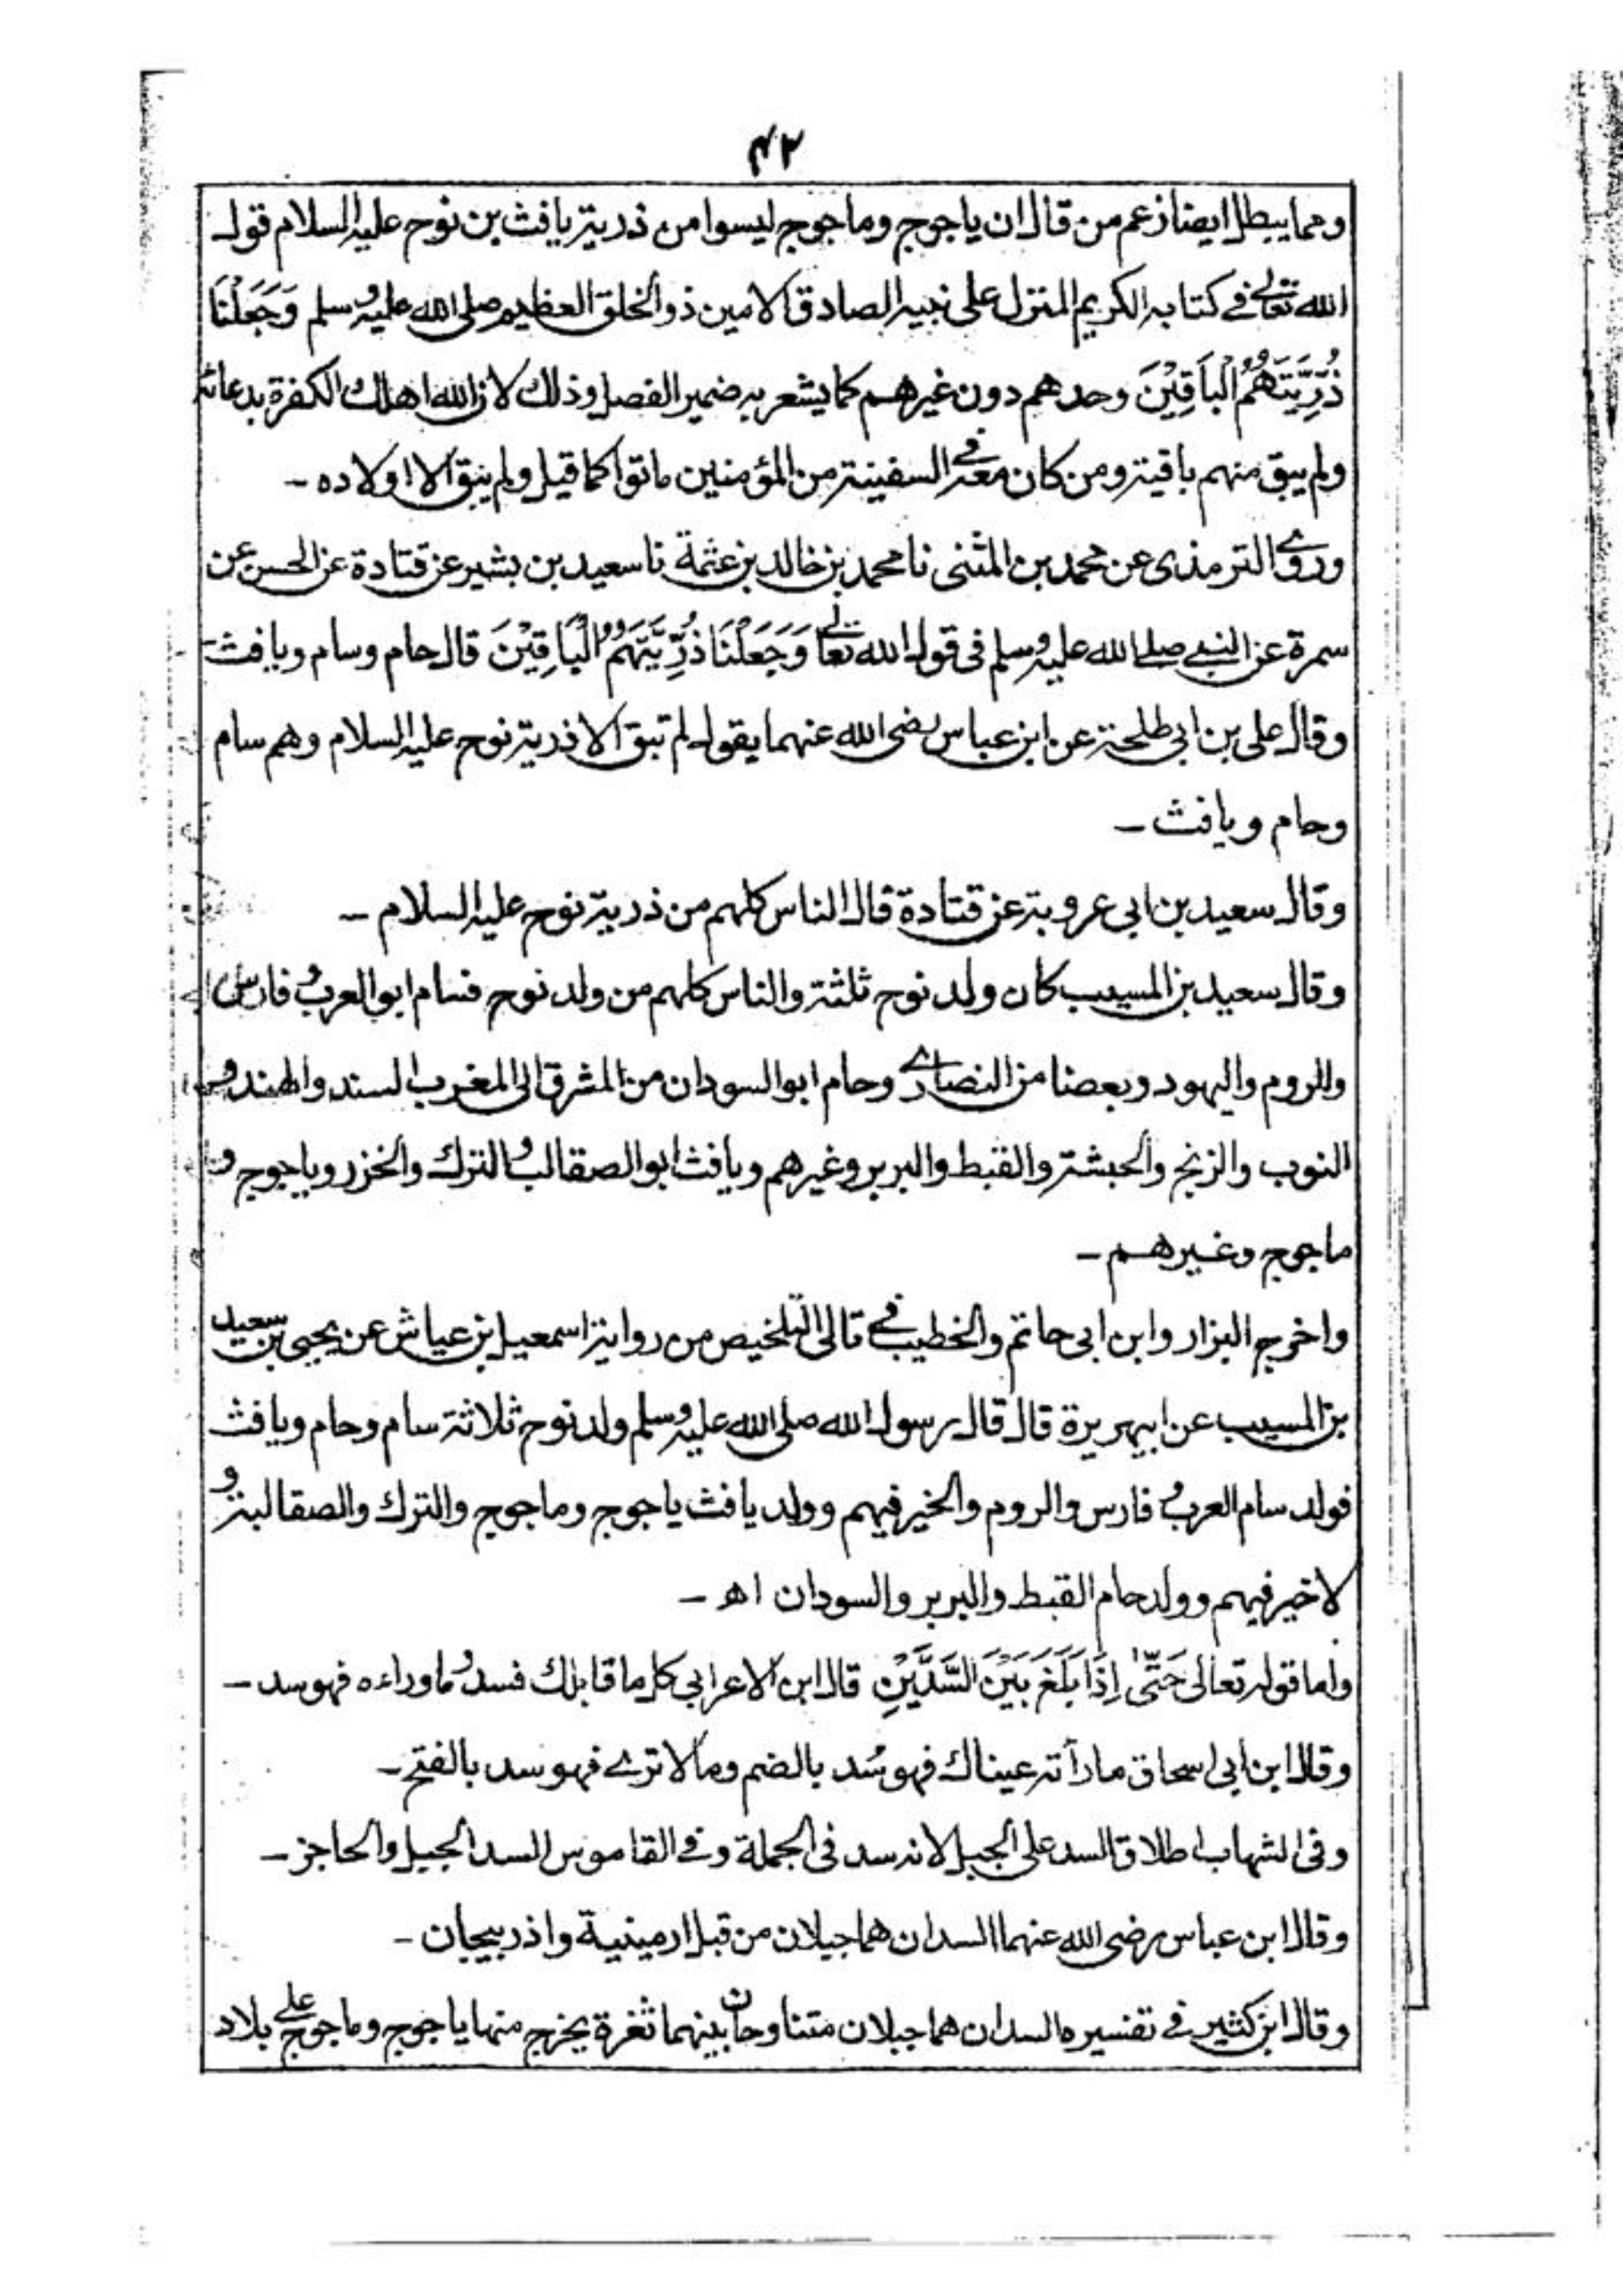 ۴۲
ومما يبطل ايضا زعم من قال ان ياجوج وماجوج ليسوا من ذرية يافث بن نوح عليه السلام قول
الله تعالى في كتابه الكريم المنزل على نبيه الصادق الامين ذو الخلق العظيم صلى الله عليه وسلم وَجَعَلْنَا
ذُرِّيَّتَهُمُ الْبَاقِيْنَ وحدهم دون غيرهم كما يشعر به ضمير الفصل وذلك لان الله اهلك الكفرة بدعائه
ولم يبق منهم باقية ومن كان معه في السفينة من المؤمنين ماتوا كما قيل ولم يبق الا اولاده -
وروى الترمذى عن محمد بن المثنى نا محمد بن خالد بن عثمة نا سعيد بن بشير عن قتادة عن الحسن عن
سمرة عن النبي صلى الله عليه وسلم فى قول الله تعالى وَجَعَلْنَا ذُرِّيَّتَهُمُ الْبَاقِيْنَ قال حام وسام ويافث -
وقال على بن ابي طلحة عن ابن عباس رضى الله عنهما يقول لم تبق الا ذرية نوح عليه السلام وهم سام
وحام ويافث -
وقال سعيد بن ابى عروبة عن قتادة قال الناس كلهم من ذرية نوح عليه السلام -
وقال سعيد بن المسيب كان ولد نوح ثلثة والناس كلهم من ولد نوح فسام ابو العرب و فارس
والروم واليهود وبعضا من النصارى وحام ابو السودان من المشرق الى المغرب السند والهند و
النوب والزنج والحبشة والقبط والبربر وغيرهم ويافث ابو الصقالب والترك والخزر وياجوج و
ماجوج وغيرهم -
واخرج البزار وابن ابى حاتم والخطيب فى تالى التلخيص من رواية اسمعيل بن عياش عن يحيى بن سعيد
بن المسيب عن ابيهريرة قال قال رسول الله صلى الله عليه وسلم ولد نوح ثلاثة سام وحام ويافث
فولد سام العرب و فارس والروم والخير فيهم وولد يافث ياجوج وماجوج والترك والصقالبة و
لا خير فيهم وولد حام القبط والبربر والسودان اھ -
واما قوله تعالى حَتّٰى اِذَا بَلَغَ بَيْنَ السَّدَّيْنِ قال ابن الاعرابي كل ما قابلك فسد ما وراءه فهو سد -
وقال ابن ابى اسحاق ما رأته عيناك فهو سُد بالضم وما لا ترى فهو سد بالفتح -
وفى الشهاب اطلاق السد على الجبل لانه سد فى الجملة وفي القاموس السد الجبل والحاجز -
وقال ابن عباس رضى الله عنهما السدان هما جبلان من قبل ارمينية واذربيجان -
وقال ابن كثير في تفسيره السدان هما جبلان متناوحان بينهما ثغرة يخرج منها ياجوج وماجوج على بلاد